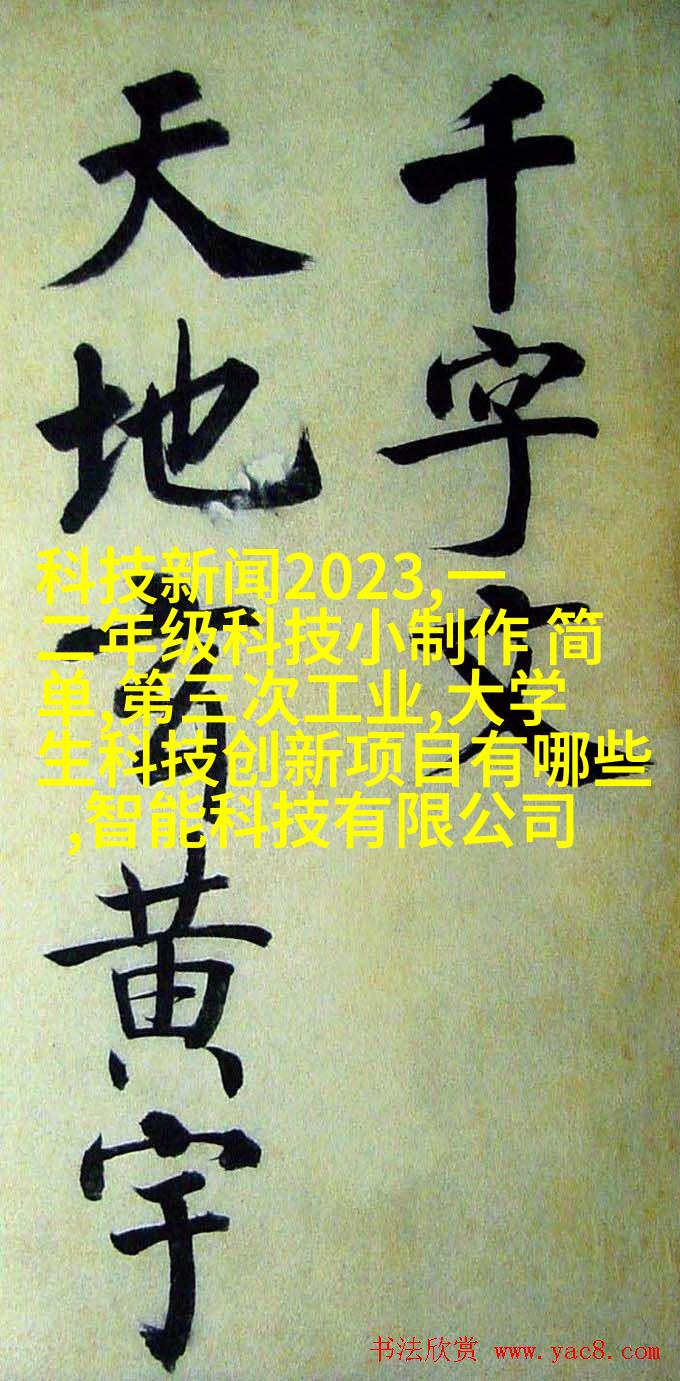 千字文
天地黄宇
科技新闻2023,一
二年级科技小制作 简
单,第三次工业,大学
生科技创新项目有哪些
,智能科技有限公司
书法欣赏 www.yac8.com